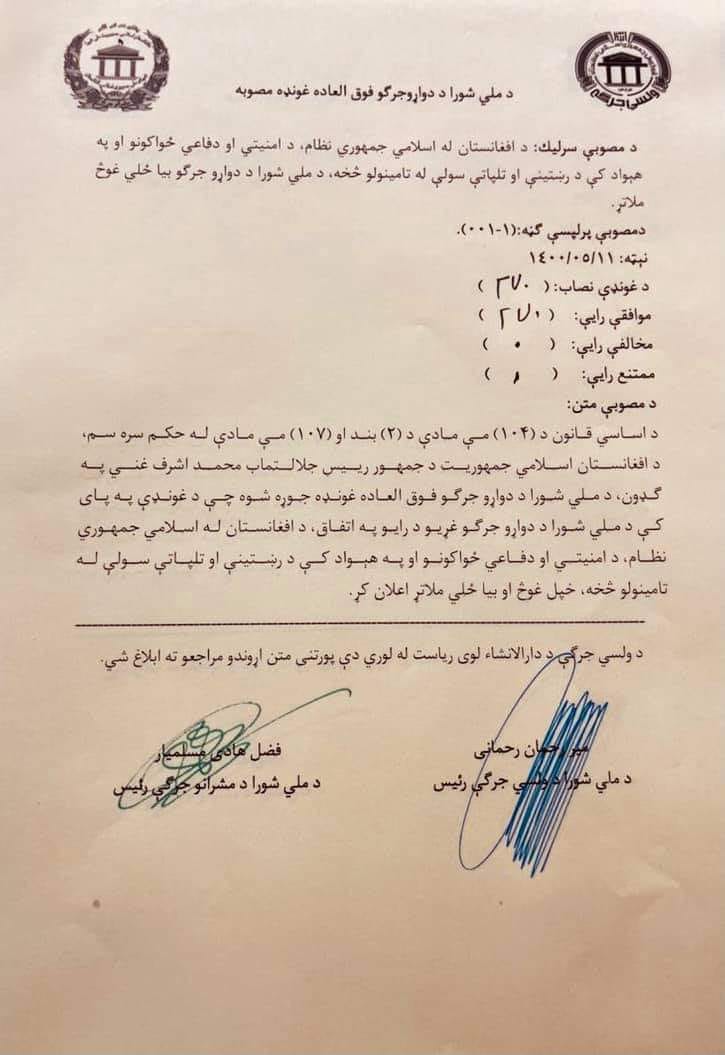 ولسي جرګه
د ملي شورا د دواړوجرګو فوق العاده غونډه مصوبه
د مصوبې سرلیك: د افغانستان له اسلامي جمهوري نظام، د امنیتي او دفاعي ځواکونو او په
هېواد کې د رښتینې او تلپاتې سولې له تامینولو څخه، د ملي شورا د دواړو جرګو بیا ځلي غوڅ
ملاتړ.
دمصوبې پرلپسې ګڼه:(۱-۰۰۱).
نېټه: ۱٤۰۰/۰٥/۱۱
د غونډې نصاب: ( ۲۷۰ )
موافقې رایې: ( ۲۷۰ )
مخالفې رایې: ( ۰ )
ممتنع رایې: ( )
د مصوبې متن:
د اساسي قانون د (۱۰۴) مې مادې د (۲) بند او (۱۰۷) مې مادې له حکم سره سم،
د افغانستان اسلامي جمهوریت د جمهور رییس جلالتماب محمد اشرف غني په
ګډون، د ملي شورا د دواړو جرګو فوق العاده غونډه جوړه شوه چې د غونډې په پای
کې د ملي شورا د دواړو جرګو غړیو د رایو په اتفاق، د افغانستان له اسلامي جمهوري
نظام، د امنیتي او دفاعي ځواکونو او په هېواد کې د رښتینې او تلپاتې سولې له
تامینولو څخه، خپل غوڅ او بیا ځلي ملاتړ اعلان کړ.
د ولسي جرګې د دارالانشاء لوی ریاست له لوري دې پورتنی متن اړوندو مراجعو ته ابلاغ شي.
میر رحمان رحمانی
د ملي شورا د ولسي جرګې رئیس
فضل هادی مسلمیار
د ملي شورا د مشرانو جرګې رئیس